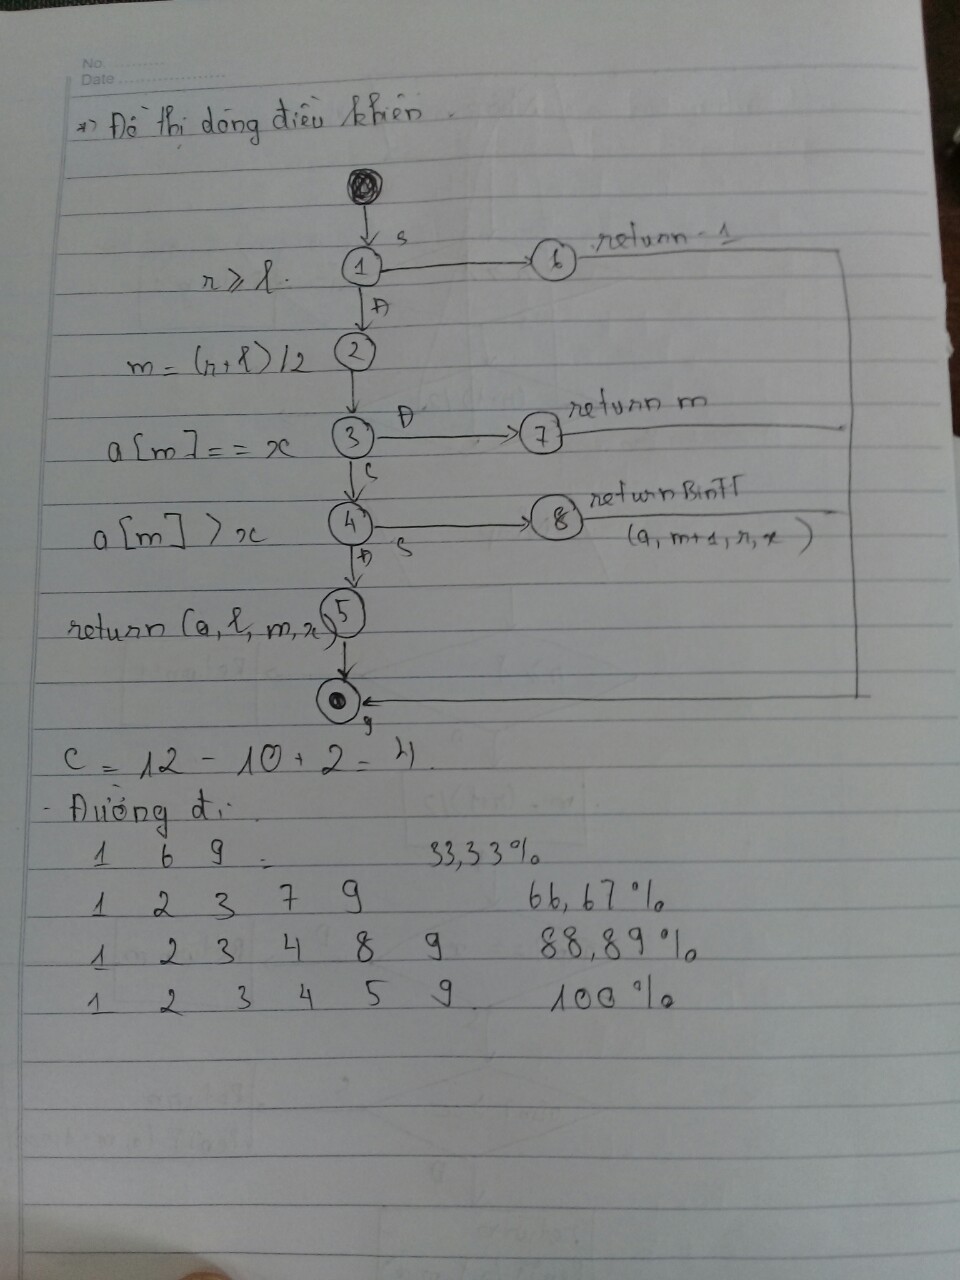 No
Date
*) Đồ thị dòng điều khiển.
S
return -1
1
6
r ≥ l.
Đ
m = (r+l)/2
2
Đ
return m
a[m] == x
3
7
S
return BinTT
a[m] > x
4
8
S
(a, m+1, r, x)
Đ
return (a, l, m, x)
5
9
C = 12 - 10 + 2 = 4.
- Đường đi:
1 6 9 33,33%
1 2 3 7 9 66,67%
1 2 3 4 8 9 88,89%
1 2 3 4 5 9 100%